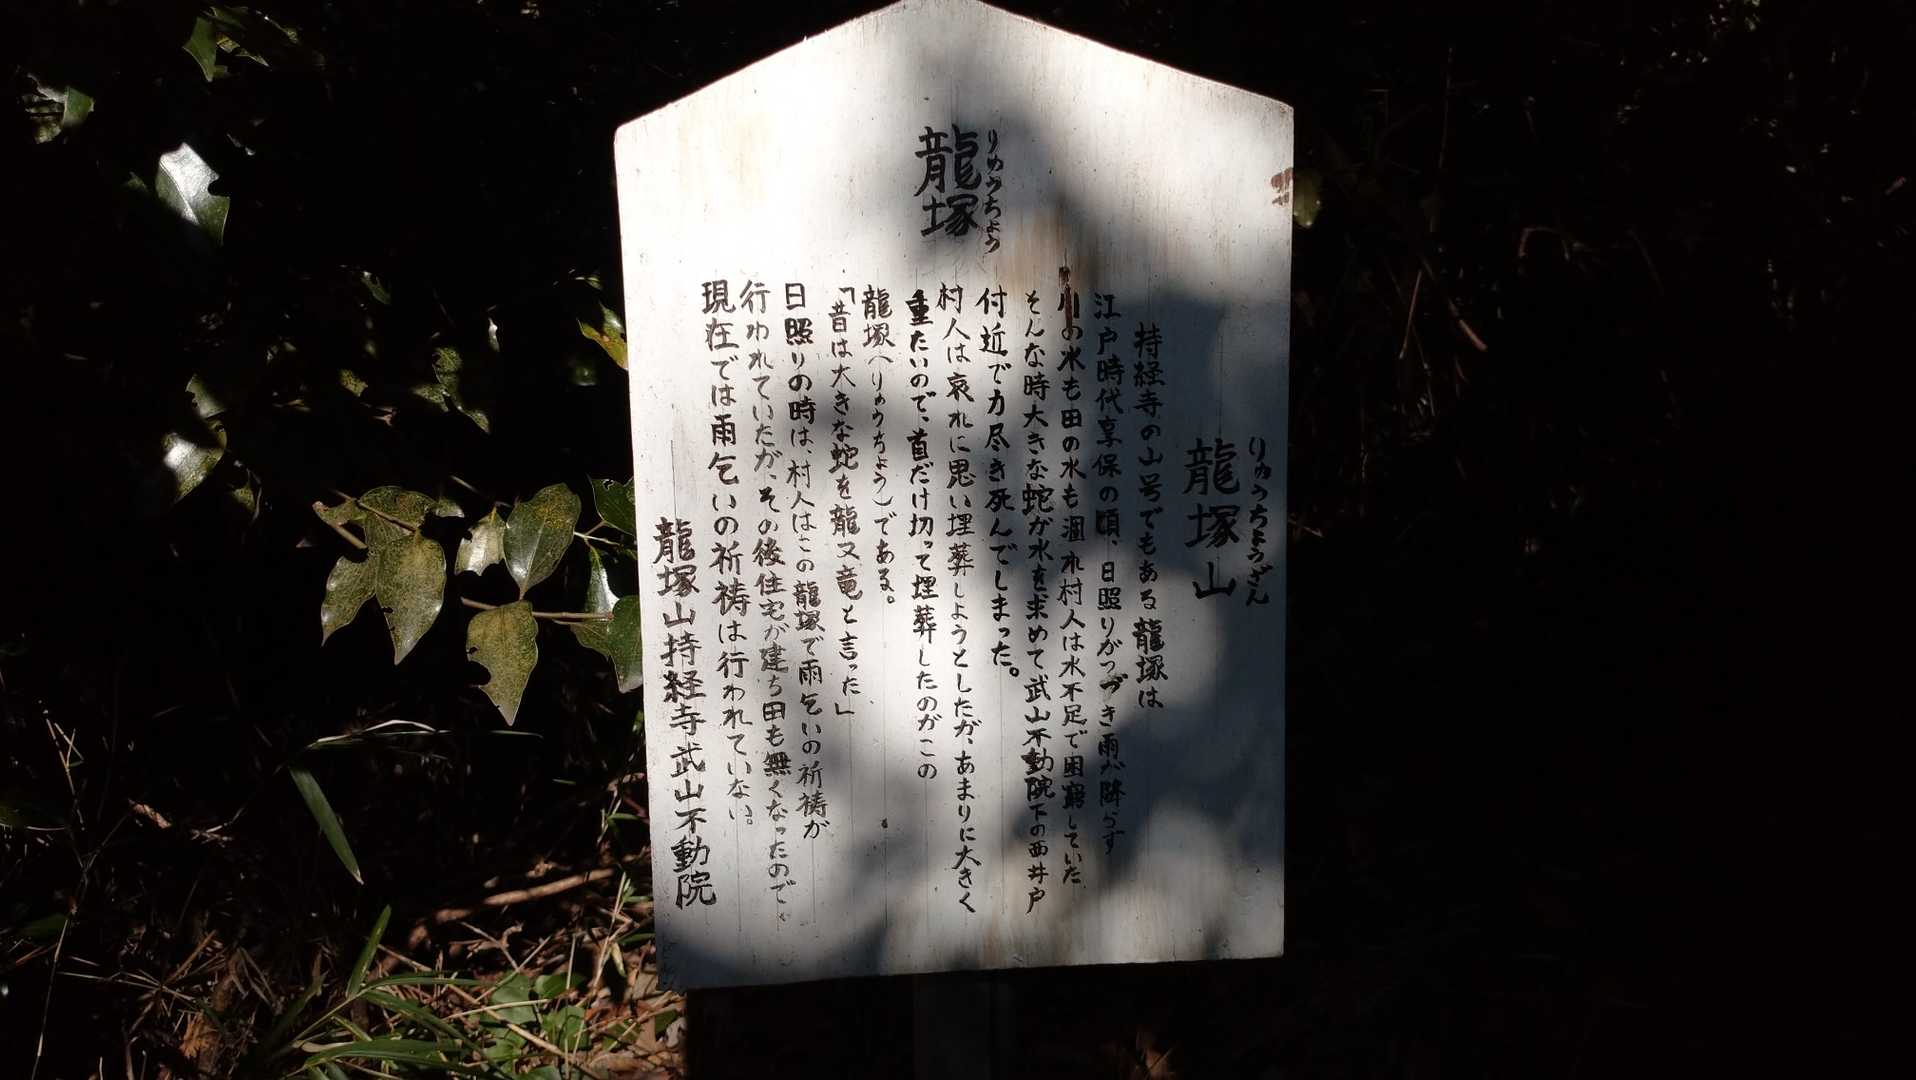 龍塚
りゅうちょう
龍塚山
りゅうちょうざん
持経寺の山号でもある龍塚は
江戸時代享保の頃、日照りがつづき雨が降らず
川の水も田の水も涸れ村人は水不足で困窮していた
そんな時大きな蛇が水を求めて武山不動院下の西井戸
付近で力尽き死んでしまった。
村人は哀れに思い埋葬しようとしたが、あまりに大きく
重たいので、首だけ切って埋葬したのがこの
龍塚（りゅうちょう）である。
「昔は大きな蛇を龍又竜と言った」
日照りの時は、村人はこの龍塚で雨乞いの祈祷が
行われていたが、その後住宅が建ち田も無くなったので、
現在では雨乞いの祈祷は行われていない。
龍塚山持経寺武山不動院